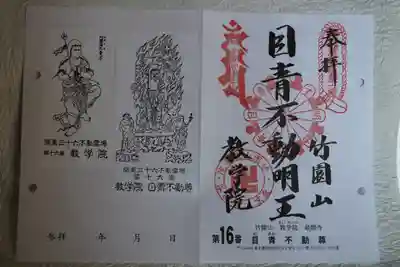 関東三十六不動霊場
第十六番 教学院
関東三十六不動霊場
第十六番
教学院 目青不動尊
参拝 年 月 日
奉拝
目青不動明王
竹園山
教学院
竹園山 教学院 最勝寺
第16番 目青不動尊